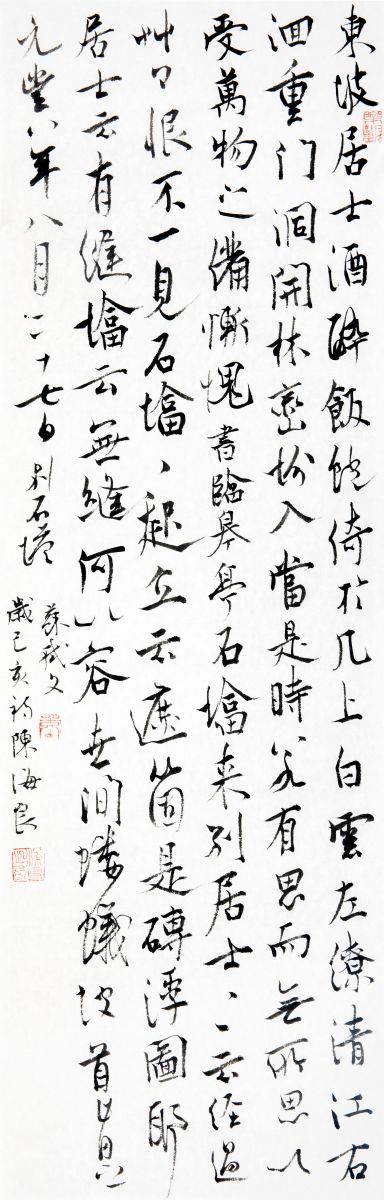 東坡居士酒醉飯飽倚於几上白雲左繚清江右
洄重门洞開林巒坌入當是時若有思而無所思以
受萬物之備慚愧書臨皋亭石塔来别居士、云經過
艸々恨不一見石塔、起立云遮箇是磚浮圖耶
居士云有縫塔云無縫何以容世間螻蟻坡首肯之
元豐八年八月二十七日别石塔
蘇軾文
歲己亥 陳海良